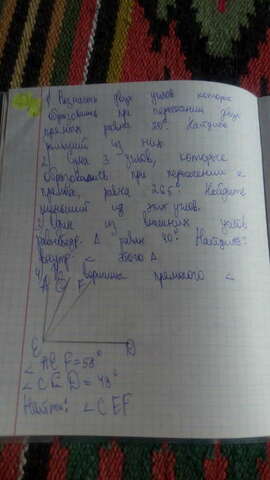 1) Разность двух углов которые
образовались при пересечении двух
прямых равна 20°. Найдите
меньший из них
2) Сума 3 углов, которые
образовались при пересечении 2
прямых, равна 265° Найдите
меньший из этих углов.
3) Один из внешних углов
равнобедр. Δ равен 40°. Найдите
внутр. < этого Δ
4) вершине прямого <
A C F
E D
< A E F = 58°
< C E D = 48°
Найти: < C E F